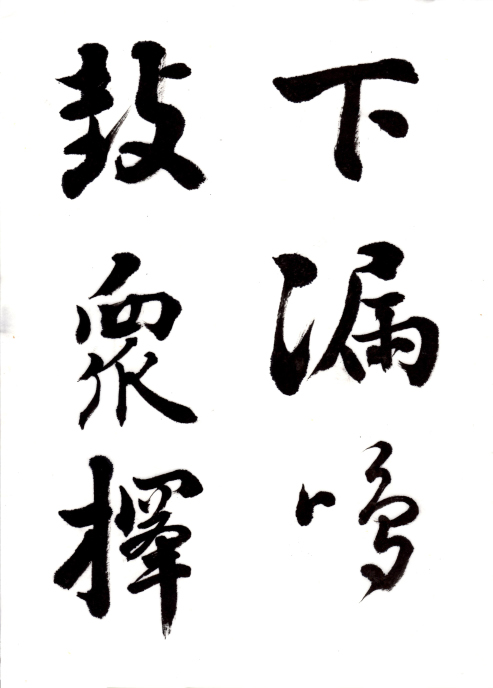 下漏鳴
鼓衆擇